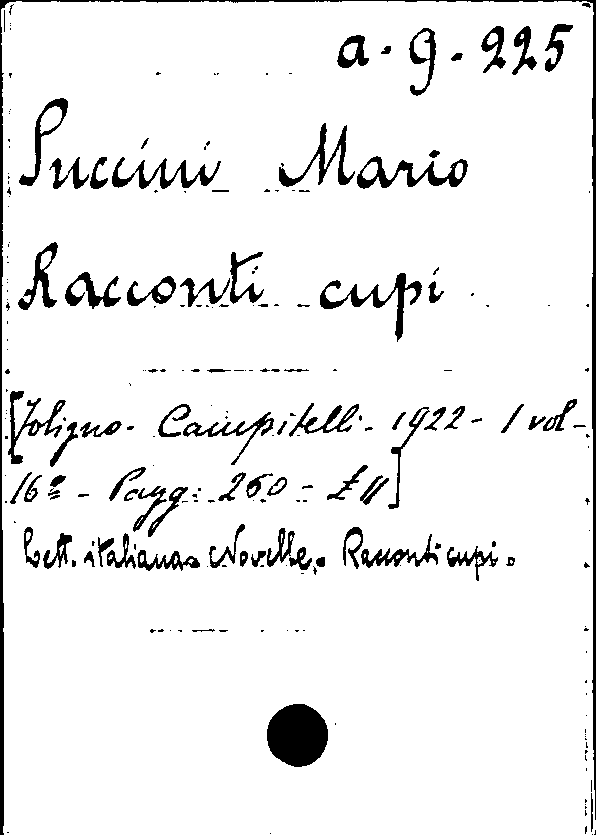 a. 9. 225
Puccini Mario
Racconti cupi
[Foligno - Campitelli - 1922 - 1 vol -
16º - Pagg: 260 - £ 11]
Lett. italiana - Novelle. - Racconti cupi.